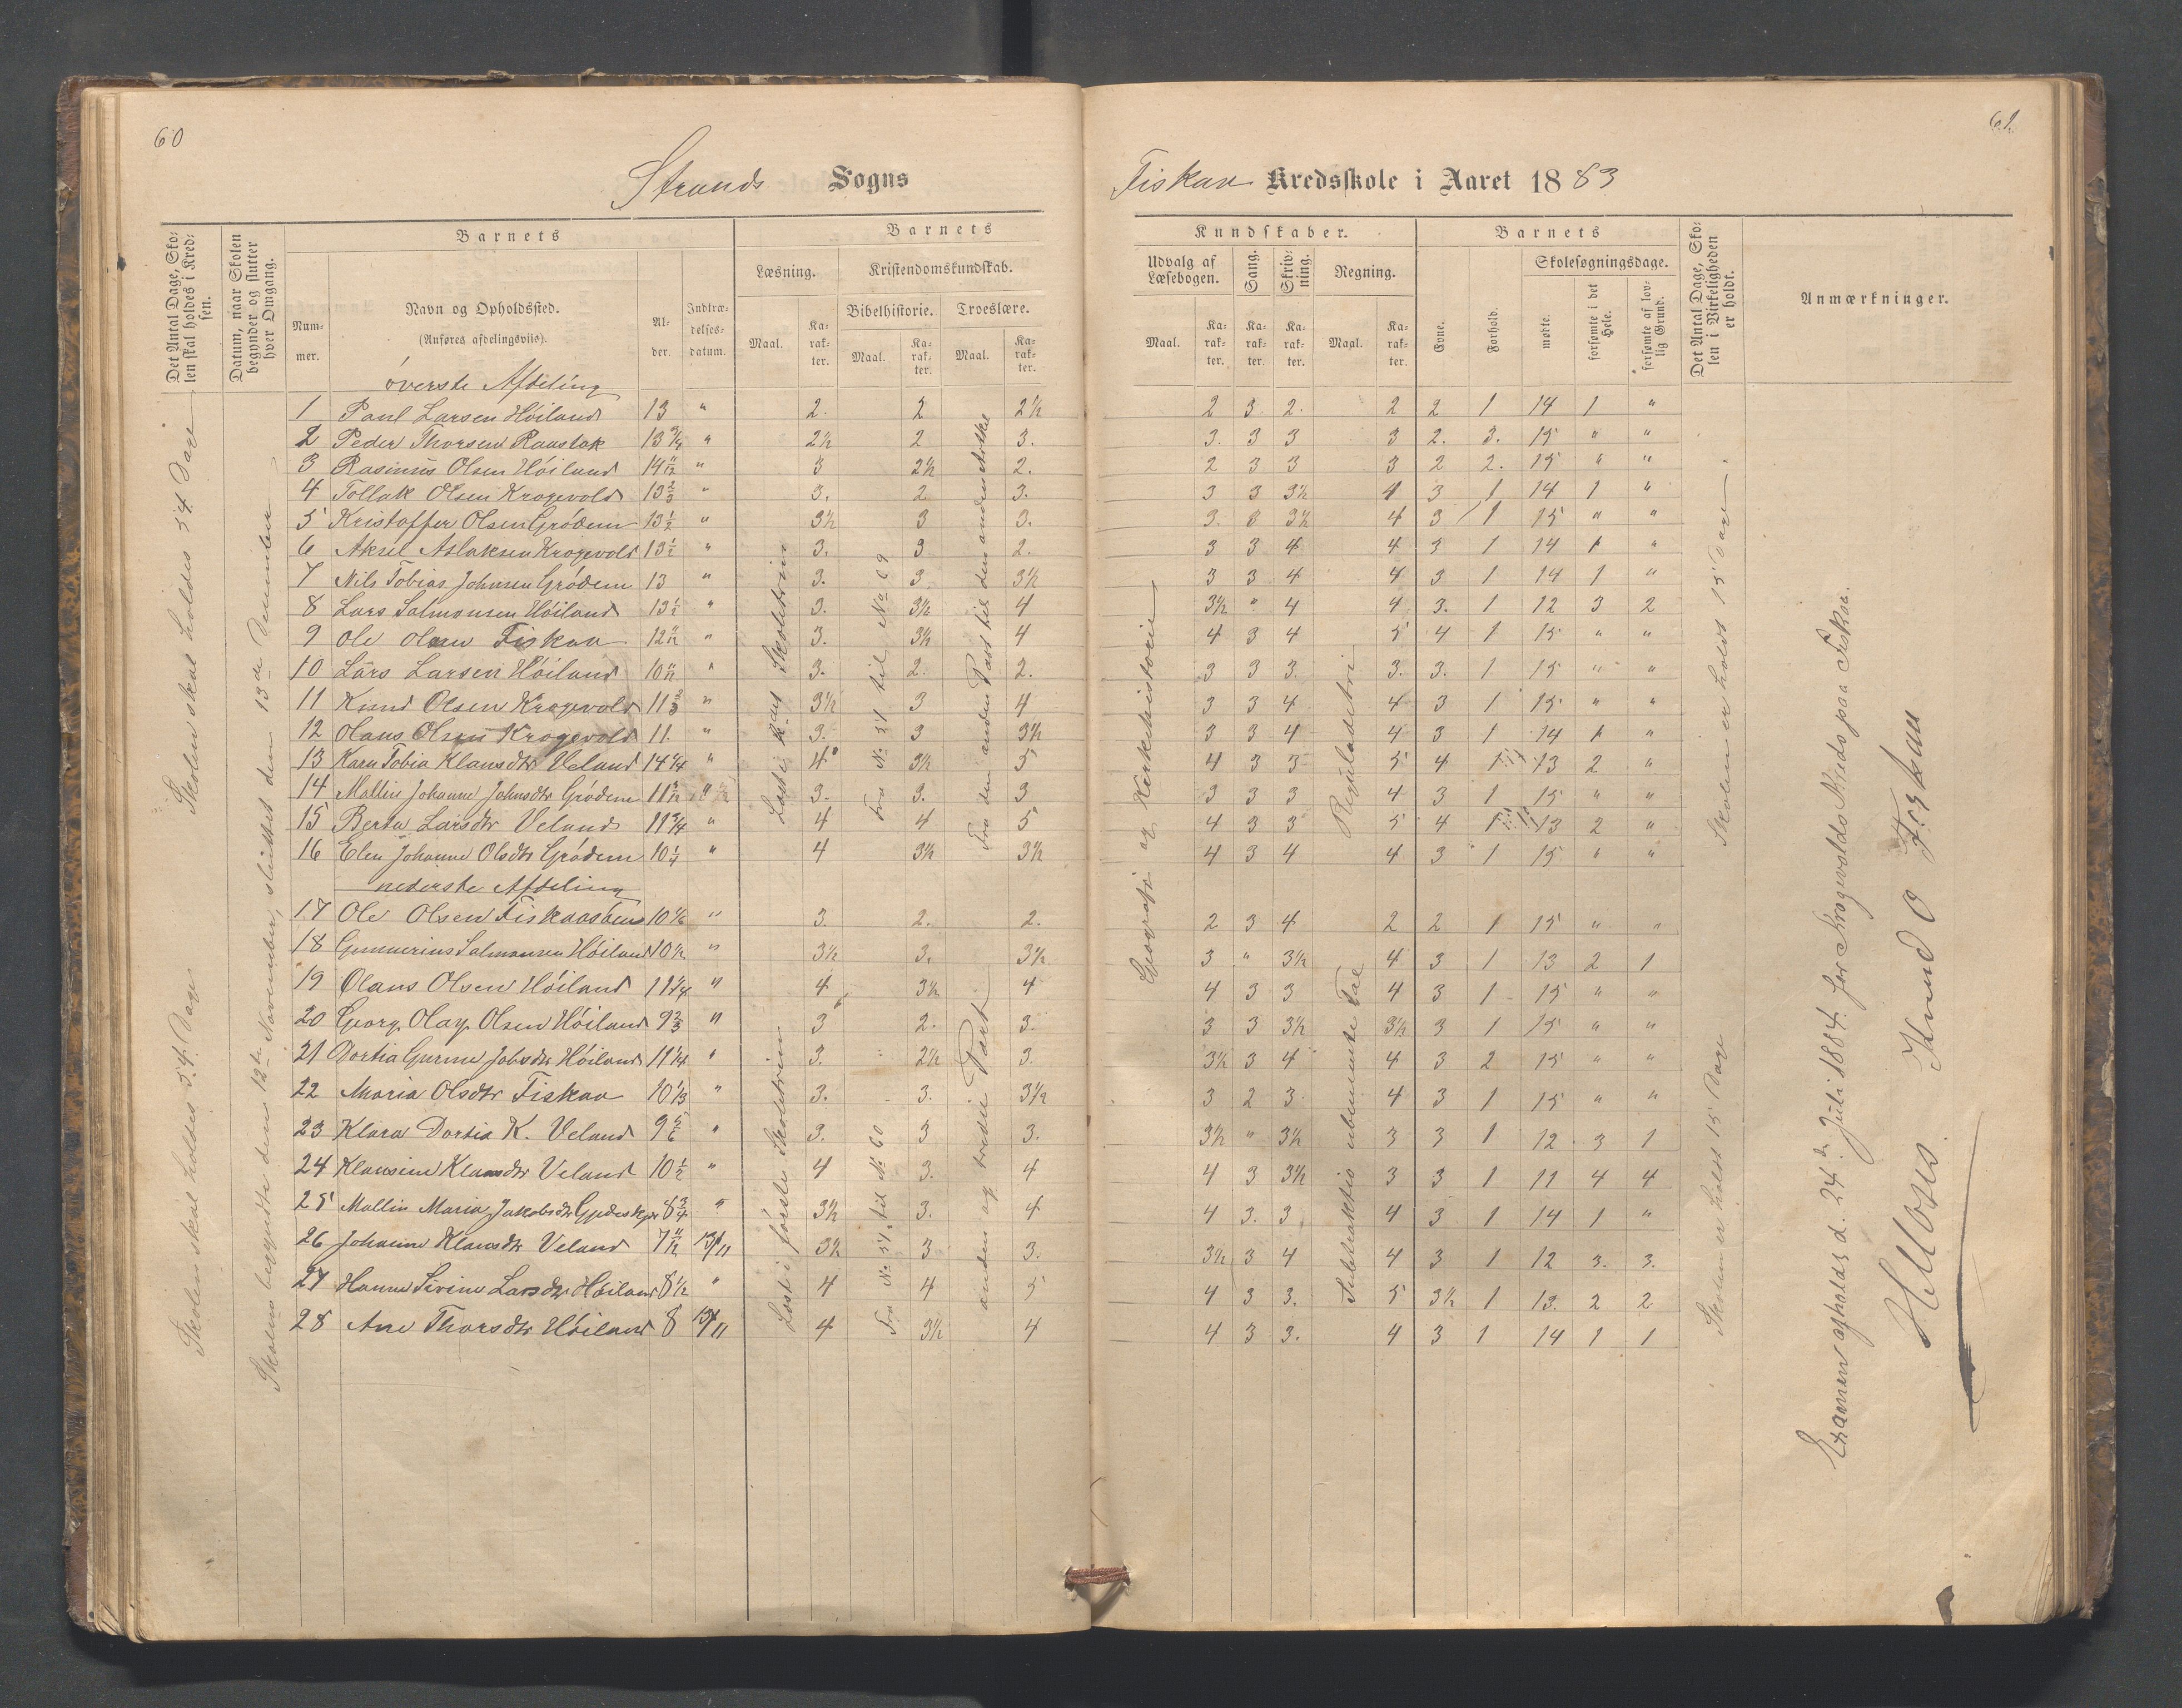 60
61
Strands Sogns
Fiskaa Kredsskole i Aaret 1883
Det Antal Dage, Skolen skal holdes i Kredsen.
Datum, naar Skolen begynder og slutter hver Omgang.
Barnets
Barnets
Kundskaber.
Barnets
Det Antal Dage, Skolen i Virkeligheden er holdt.
Anmærkninger.
Nummer.
Navn og Opholdssted.
(Anføres afdelingsviis).
Alder.
Indtrædelsesdatum.
Læsning.
Kristendomskundskab.
Bibelhistorie.
Troeslære.
Maal.
Karakter.
Maal.
Karakter.
Maal.
Karakter.
Udvalg af Læsebogen.
Sang.
Skrivning.
Regning.
Maal.
Karakter.
Karakter.
Karakter.
Maal.
Karakter.
Evne.
Forhold.
Skolesøgningsdage.
mødte.
forsømte i det Hele.
forsømte af lovlig Grund.
øverste Afdeling
1 Paul Larsen Høiland 13 " 2. 2 2½ 2 3 2. 2 2 1 14 1 "
2 Peder Thorsen Raustak 13¾ " 2½ 2 3. 3. 3 3 3 2. 3. 15 " "
3 Rasmus Olsen Høiland 14 11/12 " 3 2½ 2. 2 3 3 3 2 2. 15 " "
4 Tollak Olsen Krogevold 13⅔ " 3. 2 3. 3 3 3½ 4 3 1 14 1 "
5 Kristoffer Olsen Grødem 13½ " 3½ 3 3. 3. 3 3½ 4 3 1 15 " "
6 Aksel Aslaksen Krogevold 13½ " 3. 3 2. 3 3 4 4 3 1 14 1 "
7 Nils Tobias Johnsen Grødem 13 " 3. 3 3½ 3 3 4 4 3 1 14 1 "
8 Lars Salmonsen Høiland 13½ " 3. 3½ 4 3½ " 4 4 3. 1 12 3 2
9 Ole Olsen Fiskaa 12 11/12 " 3. 3½ 4 4 3 4 5 4 1 15 " "
10 Lars Larsen Høiland 10 11/12 " 3. 2. 2. 3 3 3. 3. 3. 1 15 " "
11 Knud Olsen Krogevold 11⅔ " 3½ 3 4 3 3 4 4 3 1 15 " "
12 Olaus Olsen Krogevold 11. " 3. 3 3½ 3 3 4 4 3 1 14 1 "
13 Karn Tobia Klausdtr Veland 14¼ " 4 3½ 5 4 3 3 5 4 1 13 2 "
14 Mallin Johanne Johnsdtr Grødem 11 5/12 " 3. 3. 3 3 3 3 4 3 1 15 " "
15 Berta Larsdtr Veland 11¾ " 4 4 5 4 3 3 5 4 1 13 2 "
16 Elen Johanne Olsdtr Grødem 10¼ " 4 3½ 3½ 4 3 4 4 3 1 15 " "
nederste Afdeling
17 Ole Olsen Fiskaaøen 10⅙ " 3. 2. 2. 2 3 4 2 2 1 15 " "
18 Gunnerius Salmonsen Høiland 10½ " 3½ 3. 3½ 3 " 3½ 4 3 1 13 2 1
19 Olaus Olsen Høiland 11¼ " 4 3½ 4 4 3 3 4 3 1 15 " "
20 Georg Olaj Olsen Høiland 9⅔ " 3 2. 3. 3 3 3½ 3½ 3 1 15 " "
21 Dortia Gurine Jobsdtr Høiland 11¼ " 3. 2½ 3. 3½ 3 4 4 3 2 15 " "
22 Maria Olsdtr Fiskaa 10⅓ " 3. 3. 3½ 3 2 3 4 3 1 15 " "
23 Klara Dortia K. Veland 9⅚ " 3. 3 3. 3½ " 3½ 3 3 1 12 3 1
24 Klausine Klausdtr Veland 10½ " 4 3. 4 4 3 3½ 3 3 1 11 4 4
25 Mallin Maria Jakobsdtr 8¾ " 3½ 3. 4 4 3. 3 4 3 1 14 1 "
26 Johanne Klausdtr Veland 7 11/12 13/11 3½ 3 3. 3½ 3 4 4 3 1 12 3. 3.
27 Hanne Sirine Larsdtr Høiland 8½ " 4 4 5 4 3 3. 5 3½ 1 13. 2 2
28 Ane Thorsdtr Høiland 8 13/11 4 3½ 4 4 3 3. 4 3 1 14 1 1
Skolen skal holdes 54 Dage
Skolen skal holdes 54 Dage
Skolen begyndte den 12te November, sluttet den 13de December
Læst i R. og Skoletrin
Læst i første Skoletrin
Fra No 51 til No 69
Fra No 51 til No 60
Fra den anden Part til den anden Artikel
anden og tredie Part
Geografi og Kirkehistorie
Reguladetri
Subtraktio ubenævnte Tal
Skolen er holdt 15 Dage
Skolen er holdt 15 Dage
Examen afholdes d. 24de Juli 1884 for Krogevolds Kreds paa Fiskaa.
Knud O Fiskaa